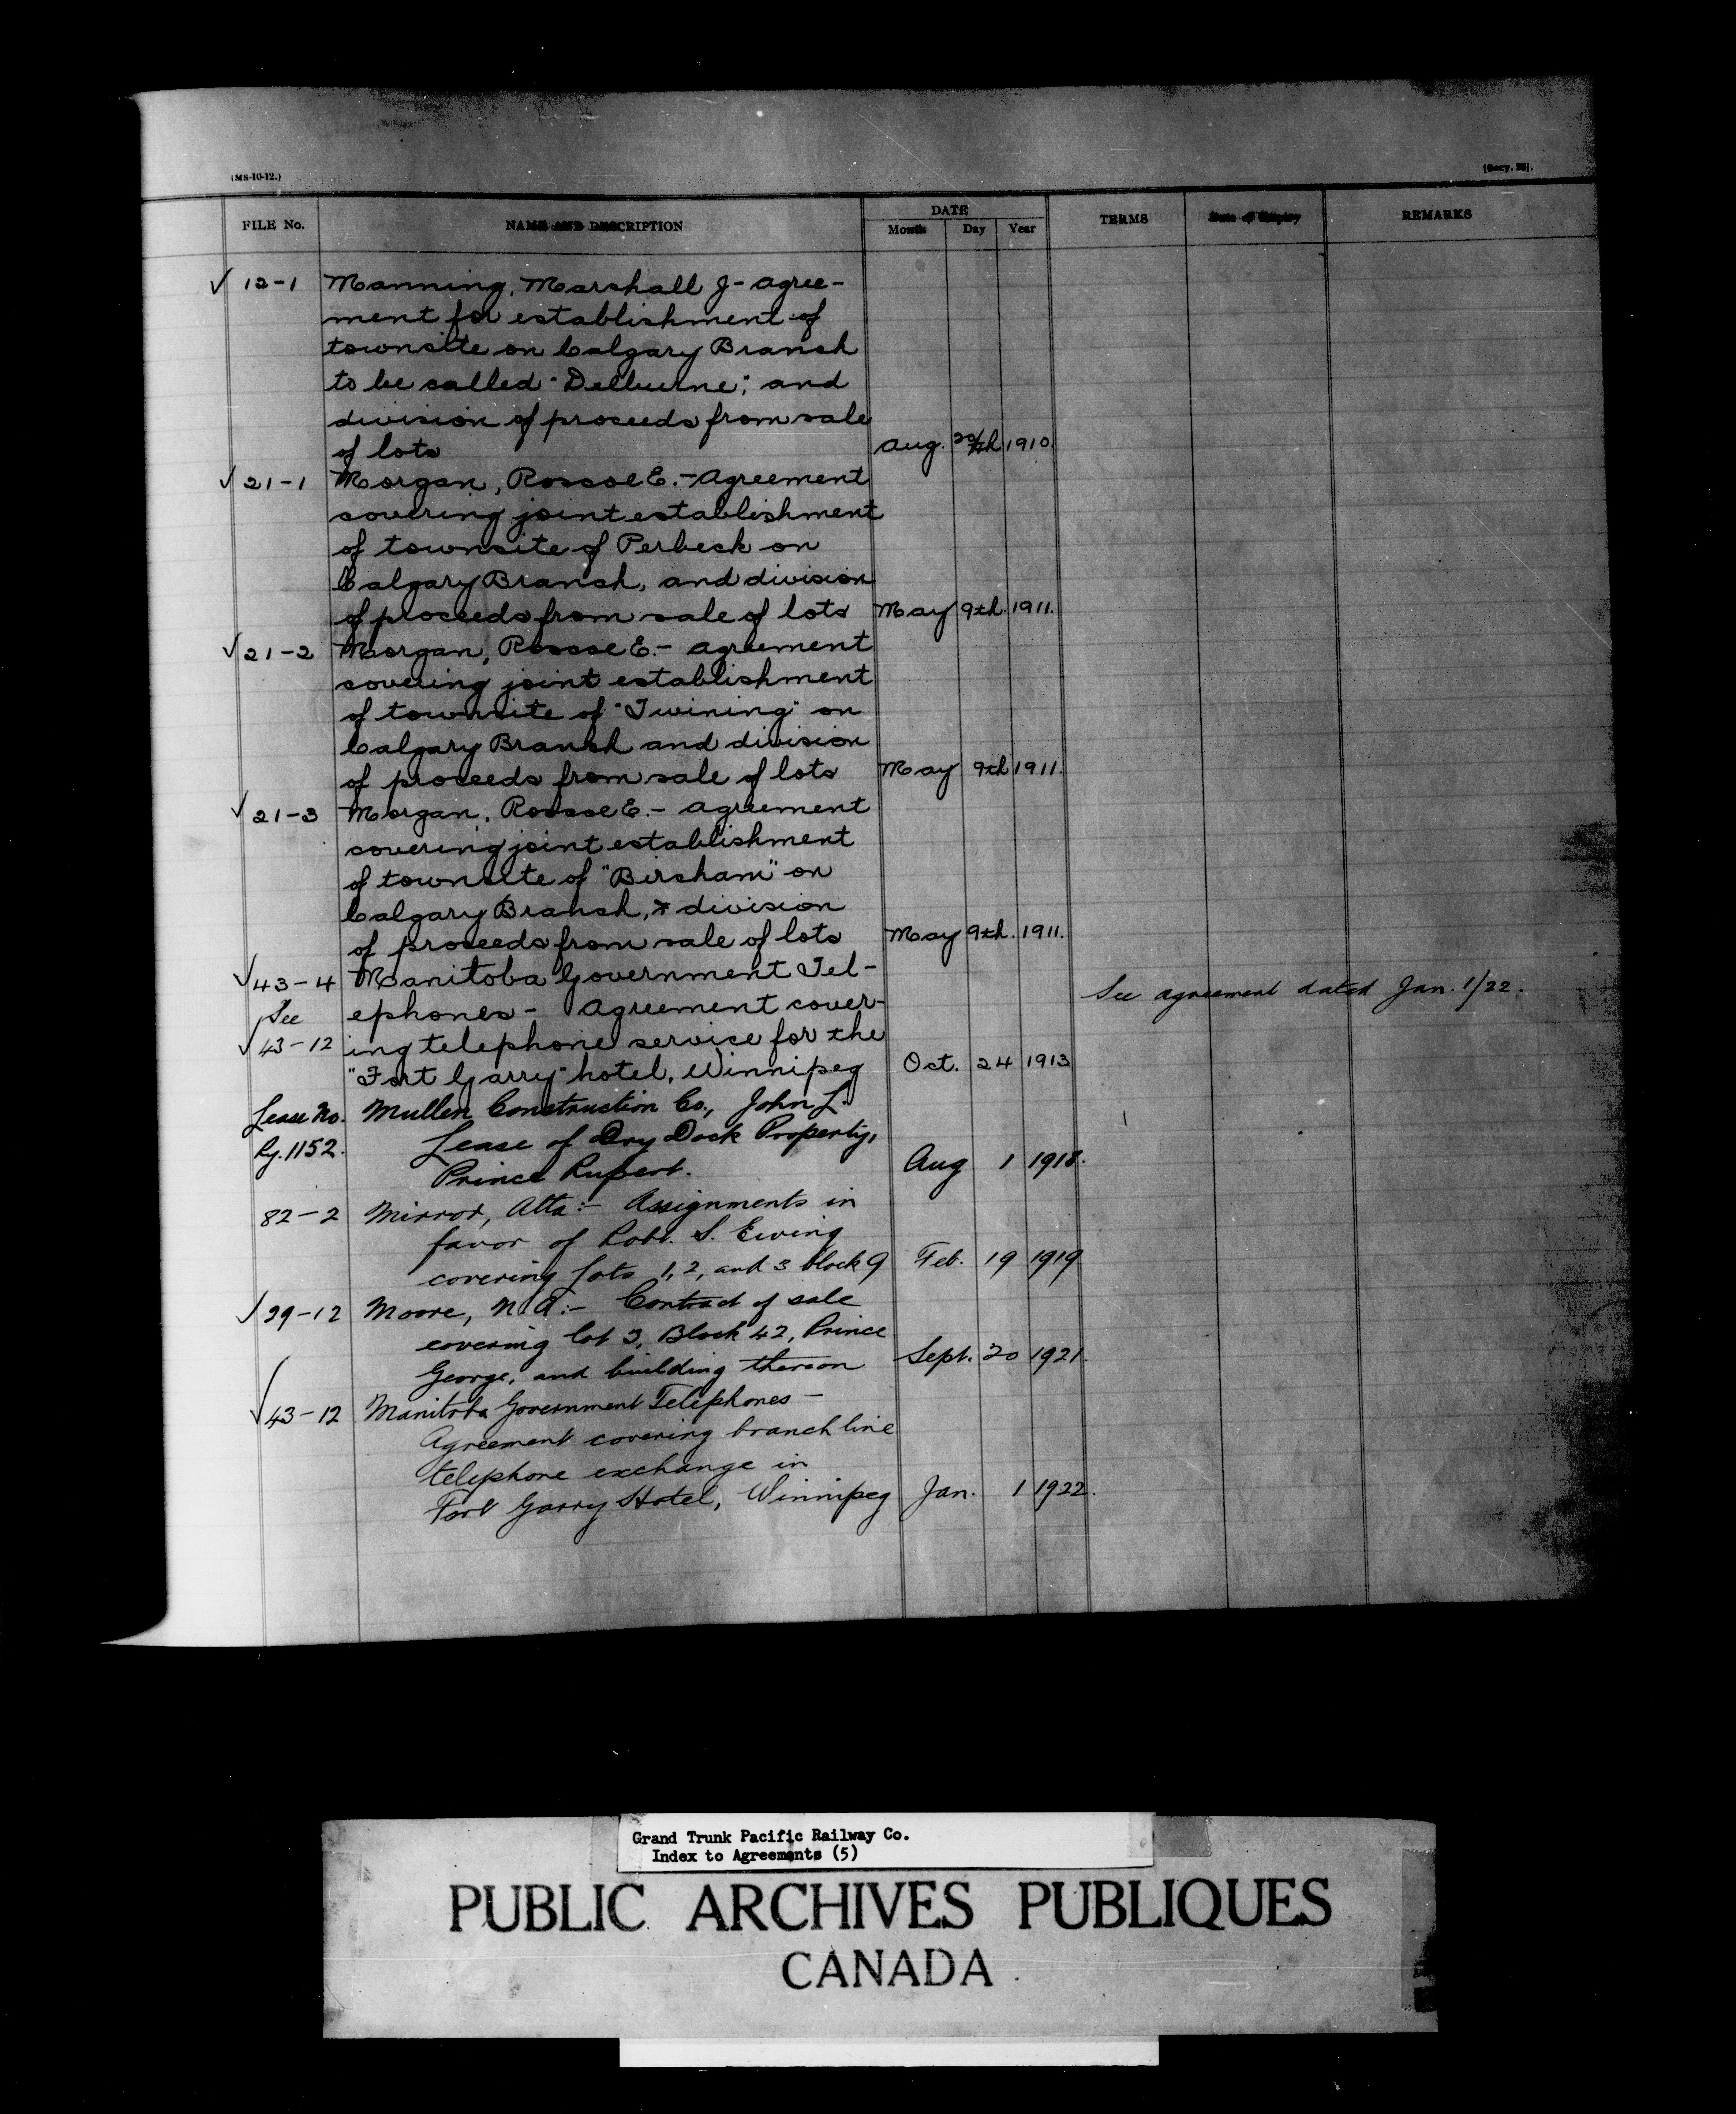 (MS-10-12.)
[Secy. 26].
FILE No. NAME AND DESCRIPTION DATE TERMS Date of Expiry REMARKS
Month Day Year
✓ 12-1 Manning, Marshall J - Agree-
ment for establishment of
townsite on Calgary Branch
to be called "Delburne", and
division of proceeds from sale
of lots Aug. 1910.
✓ 21-1 Morgan, Roscoe E. - Agreement
covering joint establishment
of townsite of Perbeck on
Calgary Branch, and division
of proceeds from sale of lots May 9th. 1911.
✓ 21-2 Morgan, Roscoe E. - Agreement
covering joint establishment
of townsite of "Twining" on
Calgary Branch and division
of proceeds from sale of lots May 9th 1911.
✓ 21-3 Morgan, Roscoe E. - Agreement
covering joint establishment
of townsite of "Bircham" on
Calgary Branch, & division
of proceeds from sale of lots May 9th. 1911.
✓ 43-4 Manitoba Government Tel-
See ephones - Agreement cover- See agreement dated Jan. 1/22.
✓ 43-12 ing telephone service for the
"Fort Garry" hotel, Winnipeg Oct. 24 1913
Lease No. Mullen Construction Co., John L.
Ry. 1152. Lease of Dry Dock Property,
Prince Rupert. Aug 1 1918.
82-2 Mirror, Alta:- Assignments in
favor of Robt. S. Ewing
covering lots 1, 2, and 3 block 9 Feb. 19 1919
✓ 29-12 Moore, N.A:- Contract of sale
covering lot 3, Block 42, Prince
George, and building thereon Sept. 20 1921.
✓ 43-12 Manitoba Government Telephones -
Agreement covering branch line
telephone exchange in
Fort Garry Hotel, Winnipeg Jan. 1 1922.
Grand Trunk Pacific Railway Co.
Index to Agreements (5)
PUBLIC ARCHIVES PUBLIQUES
CANADA